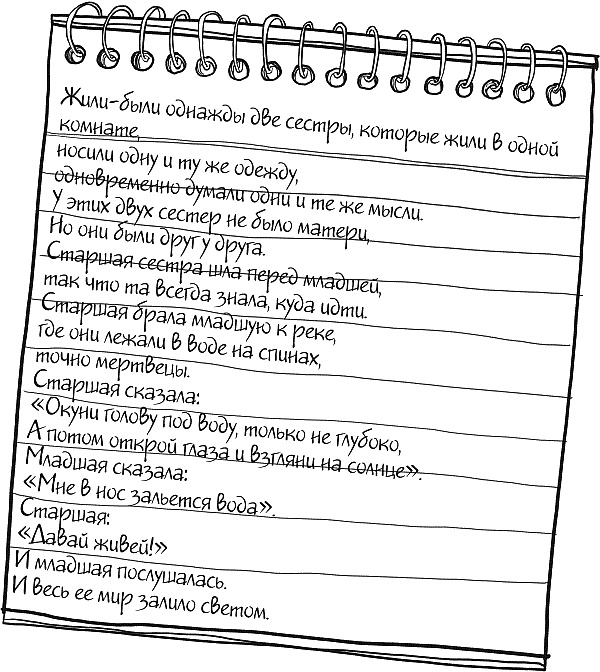 Жили-были однажды две сестры, которые жили в одной
комнате,
носили одну и ту же одежду,
одновременно думали одни и те же мысли.
У этих двух сестер не было матери,
Но они были друг у друга.
Старшая сестра шла перед младшей,
так что та всегда знала, куда идти.
Старшая брала младшую к реке,
где они лежали в воде на спинах,
точно мертвецы.
Старшая сказала:
«Окуни голову под воду, только не глубоко,
А потом открой глаза и взгляни на солнце».
Младшая сказала:
«Мне в нос зальется вода».
Старшая:
«Давай живей!»
И младшая послушалась.
И весь ее мир залило светом.